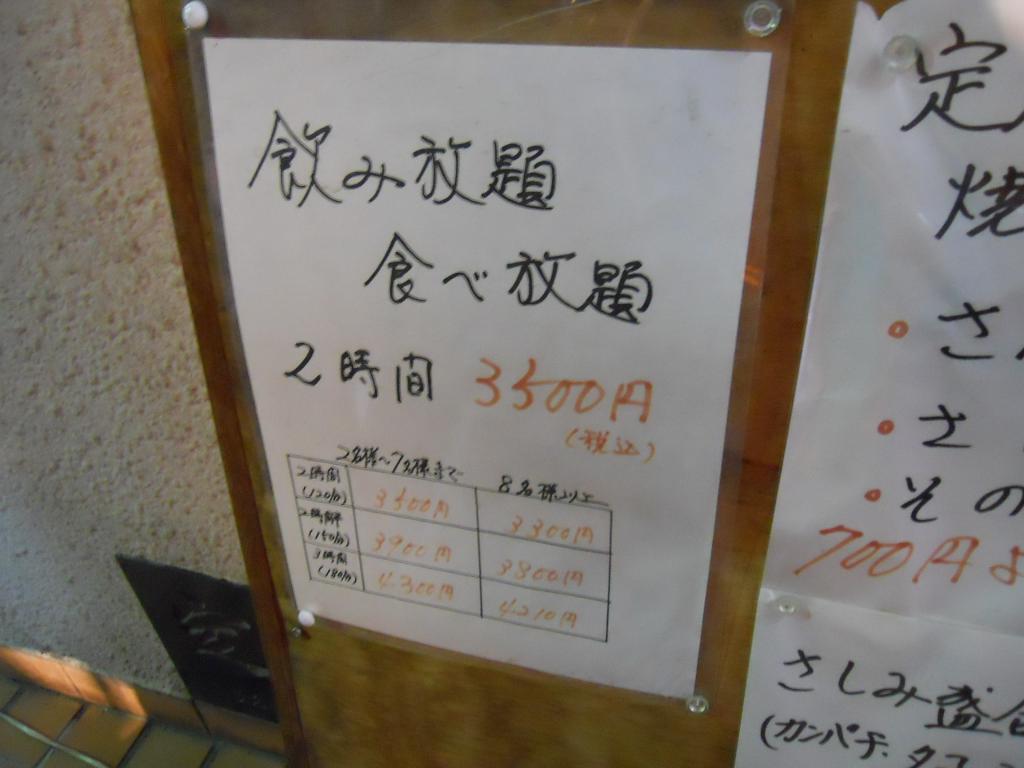 飲み放題
食べ放題
2時間 3500円
(税込)
2名様~7名様まで 8名様以上
2時間(120分) 3500円 3300円
2時間半(150分) 3900円 3800円
3時間(180分) 4300円 4210円
定
焼
・さ
・さ
・その
700円よ
さしみ盛合
(カンパチ、タコ